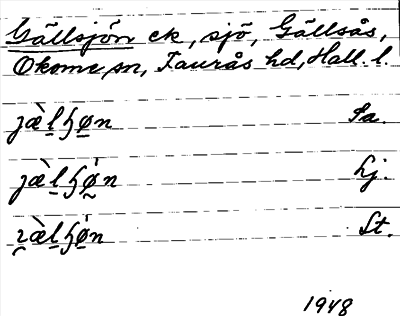 Gällsjön ek, sjö, Gällsås,
Okome sn, Faurås hd, Hall. l.
jæ̀lɧøn Sa.
jæ̀lɧø̀n Lj.
ɿæ̀lɧø̀n St.
1948